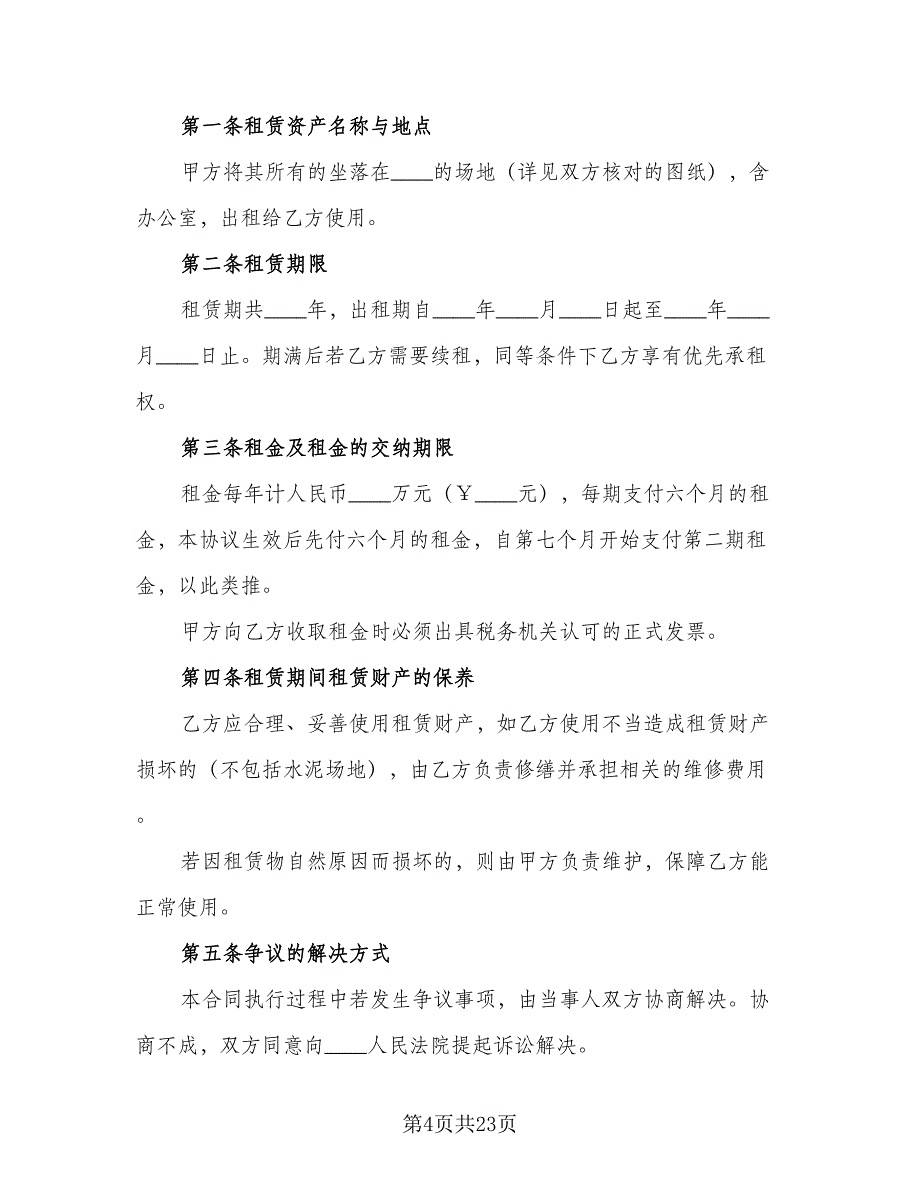 第一条租赁资产名称与地点
甲方将其所有的坐落在____的场地（详见双方核对的图纸），含
办公室，出租给乙方使用。
第二条租赁期限
租赁期共____年，出租期自____年____月____日起至____年____
月____日止。期满后若乙方需要续租，同等条件下乙方享有优先承租
权。
第三条租金及租金的交纳期限
租金每年计人民币____万元（￥____元），每期支付六个月的租
金，本协议生效后先付六个月的租金，自第七个月开始支付第二期租
金，以此类推。
甲方向乙方收取租金时必须出具税务机关认可的正式发票。
第四条租赁期间租赁财产的保养
乙方应合理、妥善使用租赁财产，如乙方使用不当造成租赁财产
损坏的（不包括水泥场地），由乙方负责修缮并承担相关的维修费用
。
若因租赁物自然原因而损坏的，则由甲方负责维护，保障乙方能
正常使用。
第五条争议的解决方式
本合同执行过程中若发生争议事项，由当事人双方协商解决。协
商不成，双方同意向____人民法院提起诉讼解决。
第4页共23页